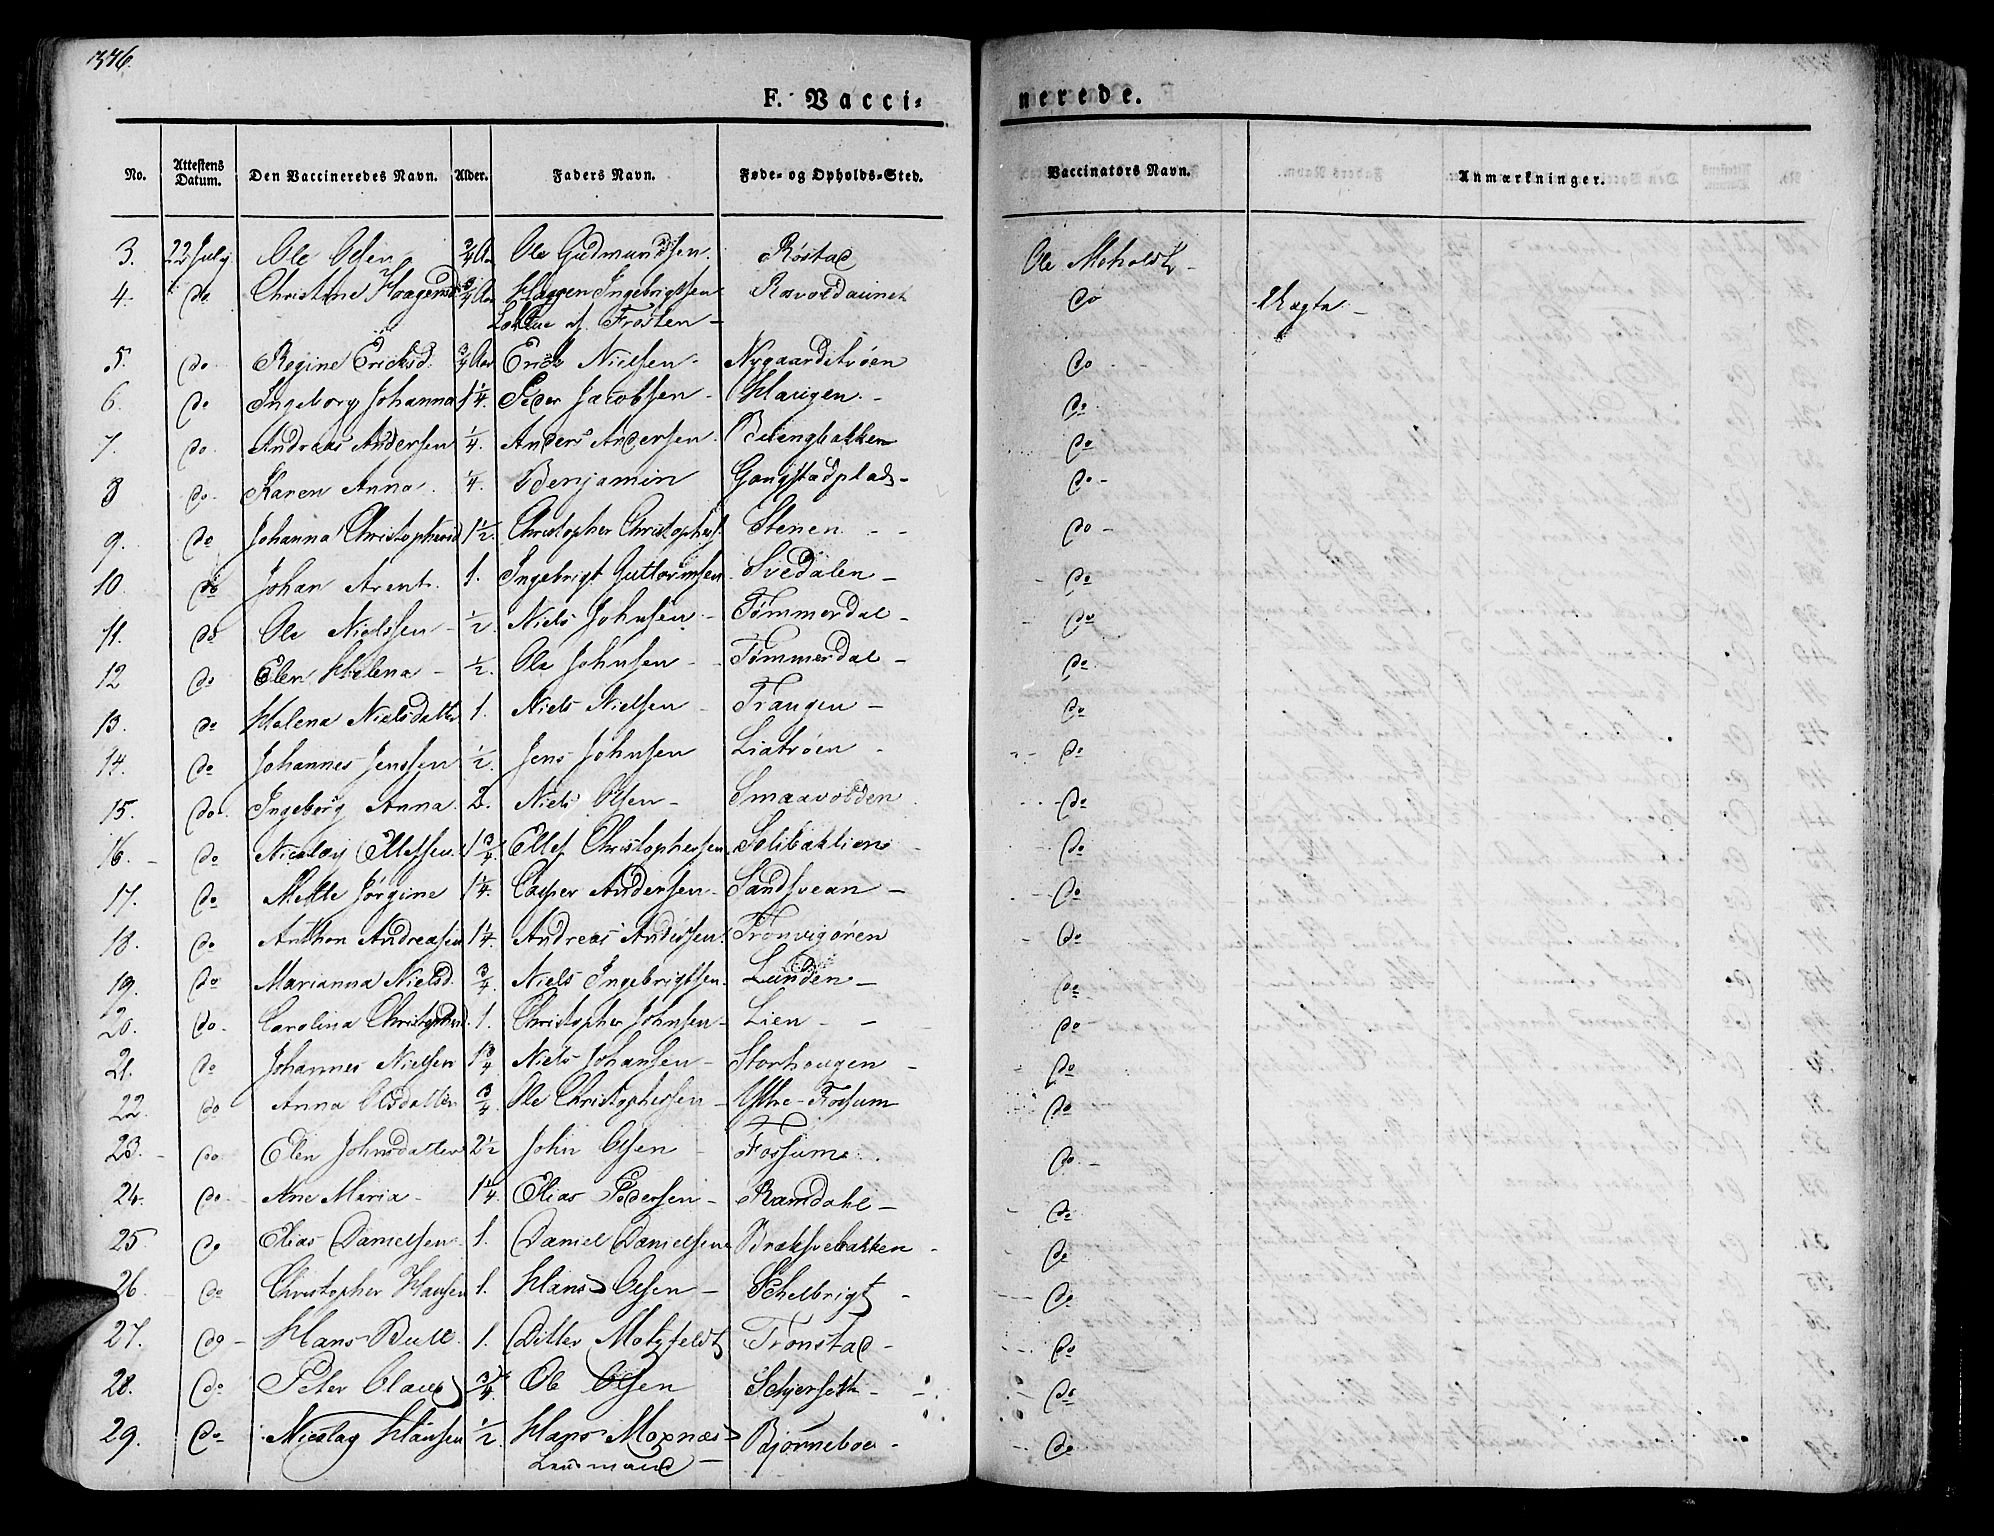 376.
F. Vacci-
nerede.
No. Attestens Datum. Den Vaccineredes Navn. Alder. Faders Navn. Føde- og Opholds-Sted. Vaccinators Navn. Anmærkninger.
3. 22 July Ole Olsen 3/4 Aar Ole Gudmundsen. Røstad Ole Meholdt
4. do Christine Haagensd 3/4 Aar Hagen Ingebrigtsen Ravoldaunet do Uægta
af Frosten
5. do Regine Ericksd. 3/4 Aar Erich Nielsen Nygaardstrøen do
6. do Ingeborg Johanna 1 1/4. Peder Jacobsen Haugen do
7. do Andreas Andersen 1/4. Anders Andersen do
8 do Karen Anna 1/4. Benjamin Gangstadplads do
9. do Johanna Christophersd 1 1/2. Christopher Christophers. Stenen do
10 do Johan Arent. 1. Ingebrigt Guttormsen Svedalen do
11. do Ole Nielssen 1/2. Niels Johnsen Tømmerdal do
12 do Elen Helena 1/2. Ole Johnsen Tømmerdal do
13. do Helena Nielsdatter 1. Niels Nielsen Trangen do
14. do Johannes Jenssen 1/2. Jens Johnsen Liatrøen do
15. do Ingeborg Anna 2. Niels Olsen Smaavolden do
16. do Nicolay Ellefsen 1 3/4. Ellef Christophersen do
17. do Mette Jørgine 1 1/4. Casper Andersen Sandsvean do
18. do Anthon Andreasen 1 1/4. Andreas Anderssen Trønvigøren do
19. do Marianna Nielsd. 3/4. Niels Ingebrigtsen Lunden do
20. do Carolina Christophersd. 1. Christopher Johnsen Lien do
21. do Johannes Nielsen 1 3/4 Niels Johansen Storhougen do
22. do Anna Olsdatter 3/4. Ole Christophersen Ystre-Fossum do
23. do Elen Johnsdatter 2 1/2 John Olsen Fossum do
24. do Ane Maria 1 1/4. Elias Pedersen Ramdahl do
25 do Elias Danielsen 1. Daniel Danielsen Bræksvebakken do
26. do Christopher Hansen 1. Hans Olsen Schelbrigt do
27. do Hans Bull 1. Ditlev Motzfeldt Tronstad do
28. do Peter Claus 3/4. Ole Olsen Schjerseth do
29. do Nicolay Hansen 1/2 Hans Moxnæs Bjørneboe do
Lensmand